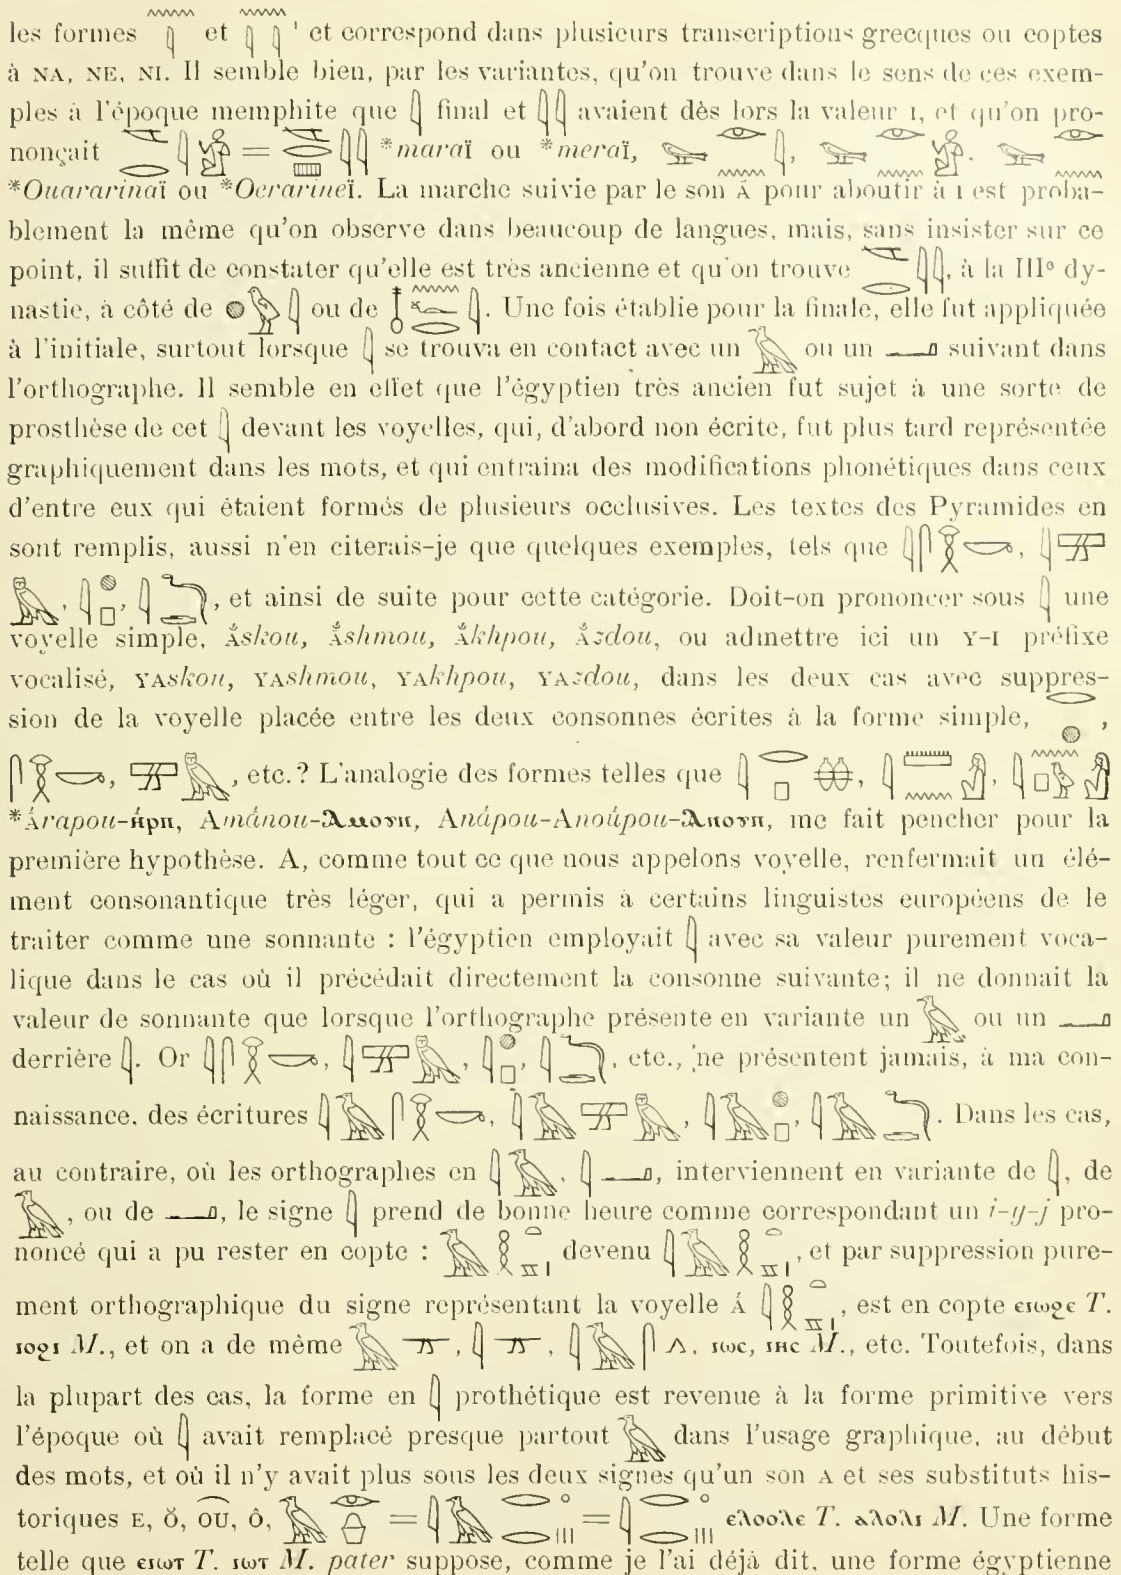 les formes 𓈖𓇋 et 𓈖𓇋𓇋 ' et correspond dans plusieurs transcriptions grecques ou coptes
à NA, NE, NI. Il semble bien, par les variantes, qu'on trouve dans le sens de ces exem-
ples à l'époque memphite que 𓇋 final et 𓇋𓇋 avaient dès lors la valeur I, et qu'on pro-
nonçait = *maraï ou *meraï,
*Ouararinaï ou *Oerarineï. La marche suivie par le son Á pour aboutir à I est proba-
blement la même qu'on observe dans beaucoup de langues, mais, sans insister sur ce
point, il suffit de constater qu'elle est très ancienne et qu'on trouve 𓇋𓇋, à la IIIᵉ dy-
nastie, à côté de 𓐍𓅱𓇋 ou de 𓇋. Une fois établie pour la finale, elle fut appliquée
à l'initiale, surtout lorsque 𓇋 se trouva en contact avec un 𓄿 ou un 𓂝 suivant dans
l'orthographe. Il semble en effet que l'égyptien très ancien fut sujet à une sorte de
prosthèse de cet 𓇋 devant les voyelles, qui, d'abord non écrite, fut plus tard représentée
graphiquement dans les mots, et qui entraina des modifications phonétiques dans ceux
d'entre eux qui étaient formés de plusieurs occlusives. Les textes des Pyramides en
sont remplis, aussi n'en citerais-je que quelques exemples, tels que 𓇋𓋴𓎛𓎡, 𓇋𓈝
𓅓, 𓇋𓐍𓊪, 𓇋𓆓, et ainsi de suite pour cette catégorie. Doit-on prononcer sous 𓇋 une
voyelle simple, Åskou, Åshmou, Åkhpou, Åzdou, ou admettre ici un Y-I préfixe
vocalisé, YAskou, YAshmou, YAkhpou, YAzdou, dans les deux cas avec suppres-
sion de la voyelle placée entre les deux consonnes écrites à la forme simple, ,
𓋴𓎛𓎡, 𓈝𓅓, etc.? L'analogie des formes telles que 𓇋𓂋𓊪, 𓇋𓏠𓈖, 𓇋𓈖𓊪𓅱
*Árapou-ⲏⲣⲡ, Amánou-ⲁⲙⲟⲩⲛ, Anápou-Anoúpou-ⲁⲛⲟⲩⲡ, me fait pencher pour la
première hypothèse. A, comme tout ce que nous appelons voyelle, renfermait un élé-
ment consonantique très léger, qui a permis à certains linguistes européens de le
traiter comme une sonnante : l'égyptien employait 𓇋 avec sa valeur purement voca-
lique dans le cas où il précédait directement la consonne suivante; il ne donnait la
valeur de sonnante que lorsque l'orthographe présente en variante un 𓄿 ou un 𓂝
derrière 𓇋. Or 𓇋𓋴𓎛𓎡, 𓇋𓈝𓅓, 𓇋𓐍𓊪, 𓇋𓆓, etc., ne présentent jamais, à ma con-
naissance, des écritures 𓇋𓄿𓋴𓎛𓎡, 𓇋𓄿𓈝𓅓, 𓇋𓄿𓐍𓊪, 𓇋𓄿𓆓. Dans les cas,
au contraire, où les orthographes en 𓇋𓄿, 𓇋𓂝, interviennent en variante de 𓇋, de
𓄿, ou de 𓂝, le signe 𓇋 prend de bonne heure comme correspondant un i-y-j pro-
noncé qui a pu rester en copte : 𓄿𓎛𓏏 devenu 𓇋𓄿𓎛𓏏, et par suppression pure-
ment orthographique du signe représentant la voyelle Á 𓇋𓎛𓏏, est en copte ⲉⲓⲱϩⲉ T.
ⲓⲟϩⲓ M., et on a de même 𓄿𓊃, 𓇋𓊃, 𓇋𓄿𓋴𓂻, ⲓⲱⲥ, ⲓⲏⲥ M., etc. Toutefois, dans
la plupart des cas, la forme en 𓇋 prothétique est revenue à la forme primitive vers
l'époque où 𓇋 avait remplacé presque partout 𓄿 dans l'usage graphique, au début
des mots, et où il n'y avait plus sous les deux signes qu'un son A et ses substituts his-
toriques E, Ŏ, OU, Ô, = = ⲉⲗⲟⲟⲗⲉ T. ⲁⲗⲟⲗⲓ M. Une forme
telle que ⲉⲓⲱⲧ T. ⲓⲱⲧ M. pater suppose, comme je l'ai déjà dit, une forme égyptienne